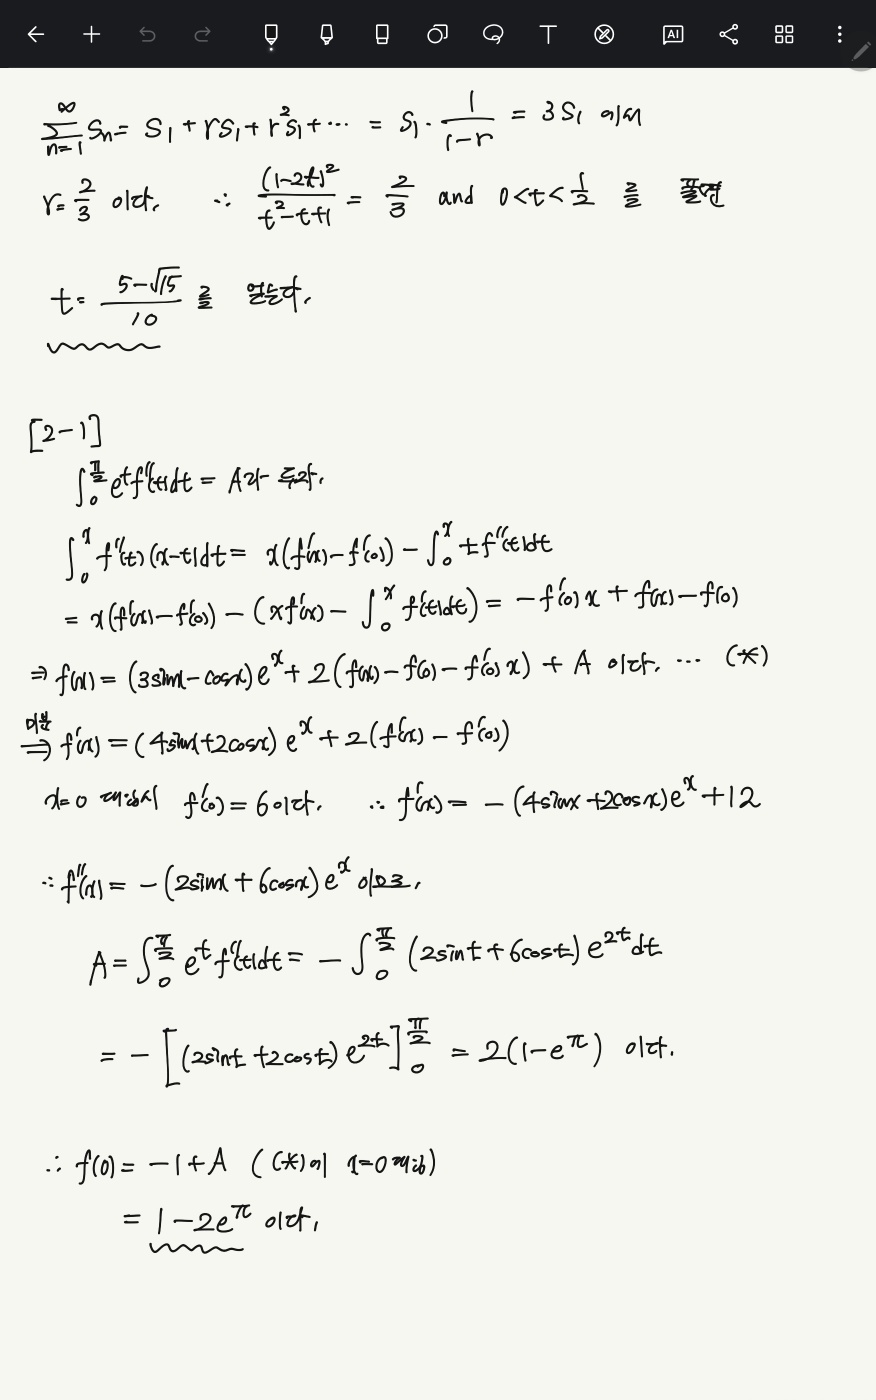 ∑_{n=1}^{∞} Sₙ = S₁ + rS₁ + r²S₁ + ⋯ = S₁ · 1/(1-r) = 3S₁ 에서
r = 2/3 이다. ∴ (1-2t)²/(t²-t+1) = 2/3 and 0<t<1/2 을 풀면
t = (5-√15)/10 를 얻는다.
[2-1]
∫₀^{π/2} eᵗf''(t)dt = A라 두자.
∫₀ˣ f''(t)(x-t)dt = x(f'(x)-f'(0)) - ∫₀ˣ tf''(t)dt
= x(f'(x)-f'(0)) - (xf'(x) - ∫₀ˣ f'(t)dt) = -f'(0)x + f(x) - f(0)
⇒ f(x) = (3sinx-cosx)eˣ + 2(f(x)-f(0)-f'(0)x) + A 이다. ⋯ (*)
미분 ⇒ f'(x) = (4sinx+2cosx)eˣ + 2(f'(x) - f'(0))
x=0 대입시 f'(0) = 6이다. ∴ f'(x) = -(4sinx+2cosx)eˣ+12
∴ f''(x) = -(2sinx+6cosx)eˣ 이므로,
A = ∫₀^{π/2} eᵗf''(t)dt = -∫₀^{π/2} (2sint+6cost)e^{2t}dt
= -[(2sint+2cost)e^{2t}]₀^{π/2} = 2(1-e^π) 이다.
∴ f(0) = -1+A ((*)에 x=0 대입)
= 1-2e^π 이다.